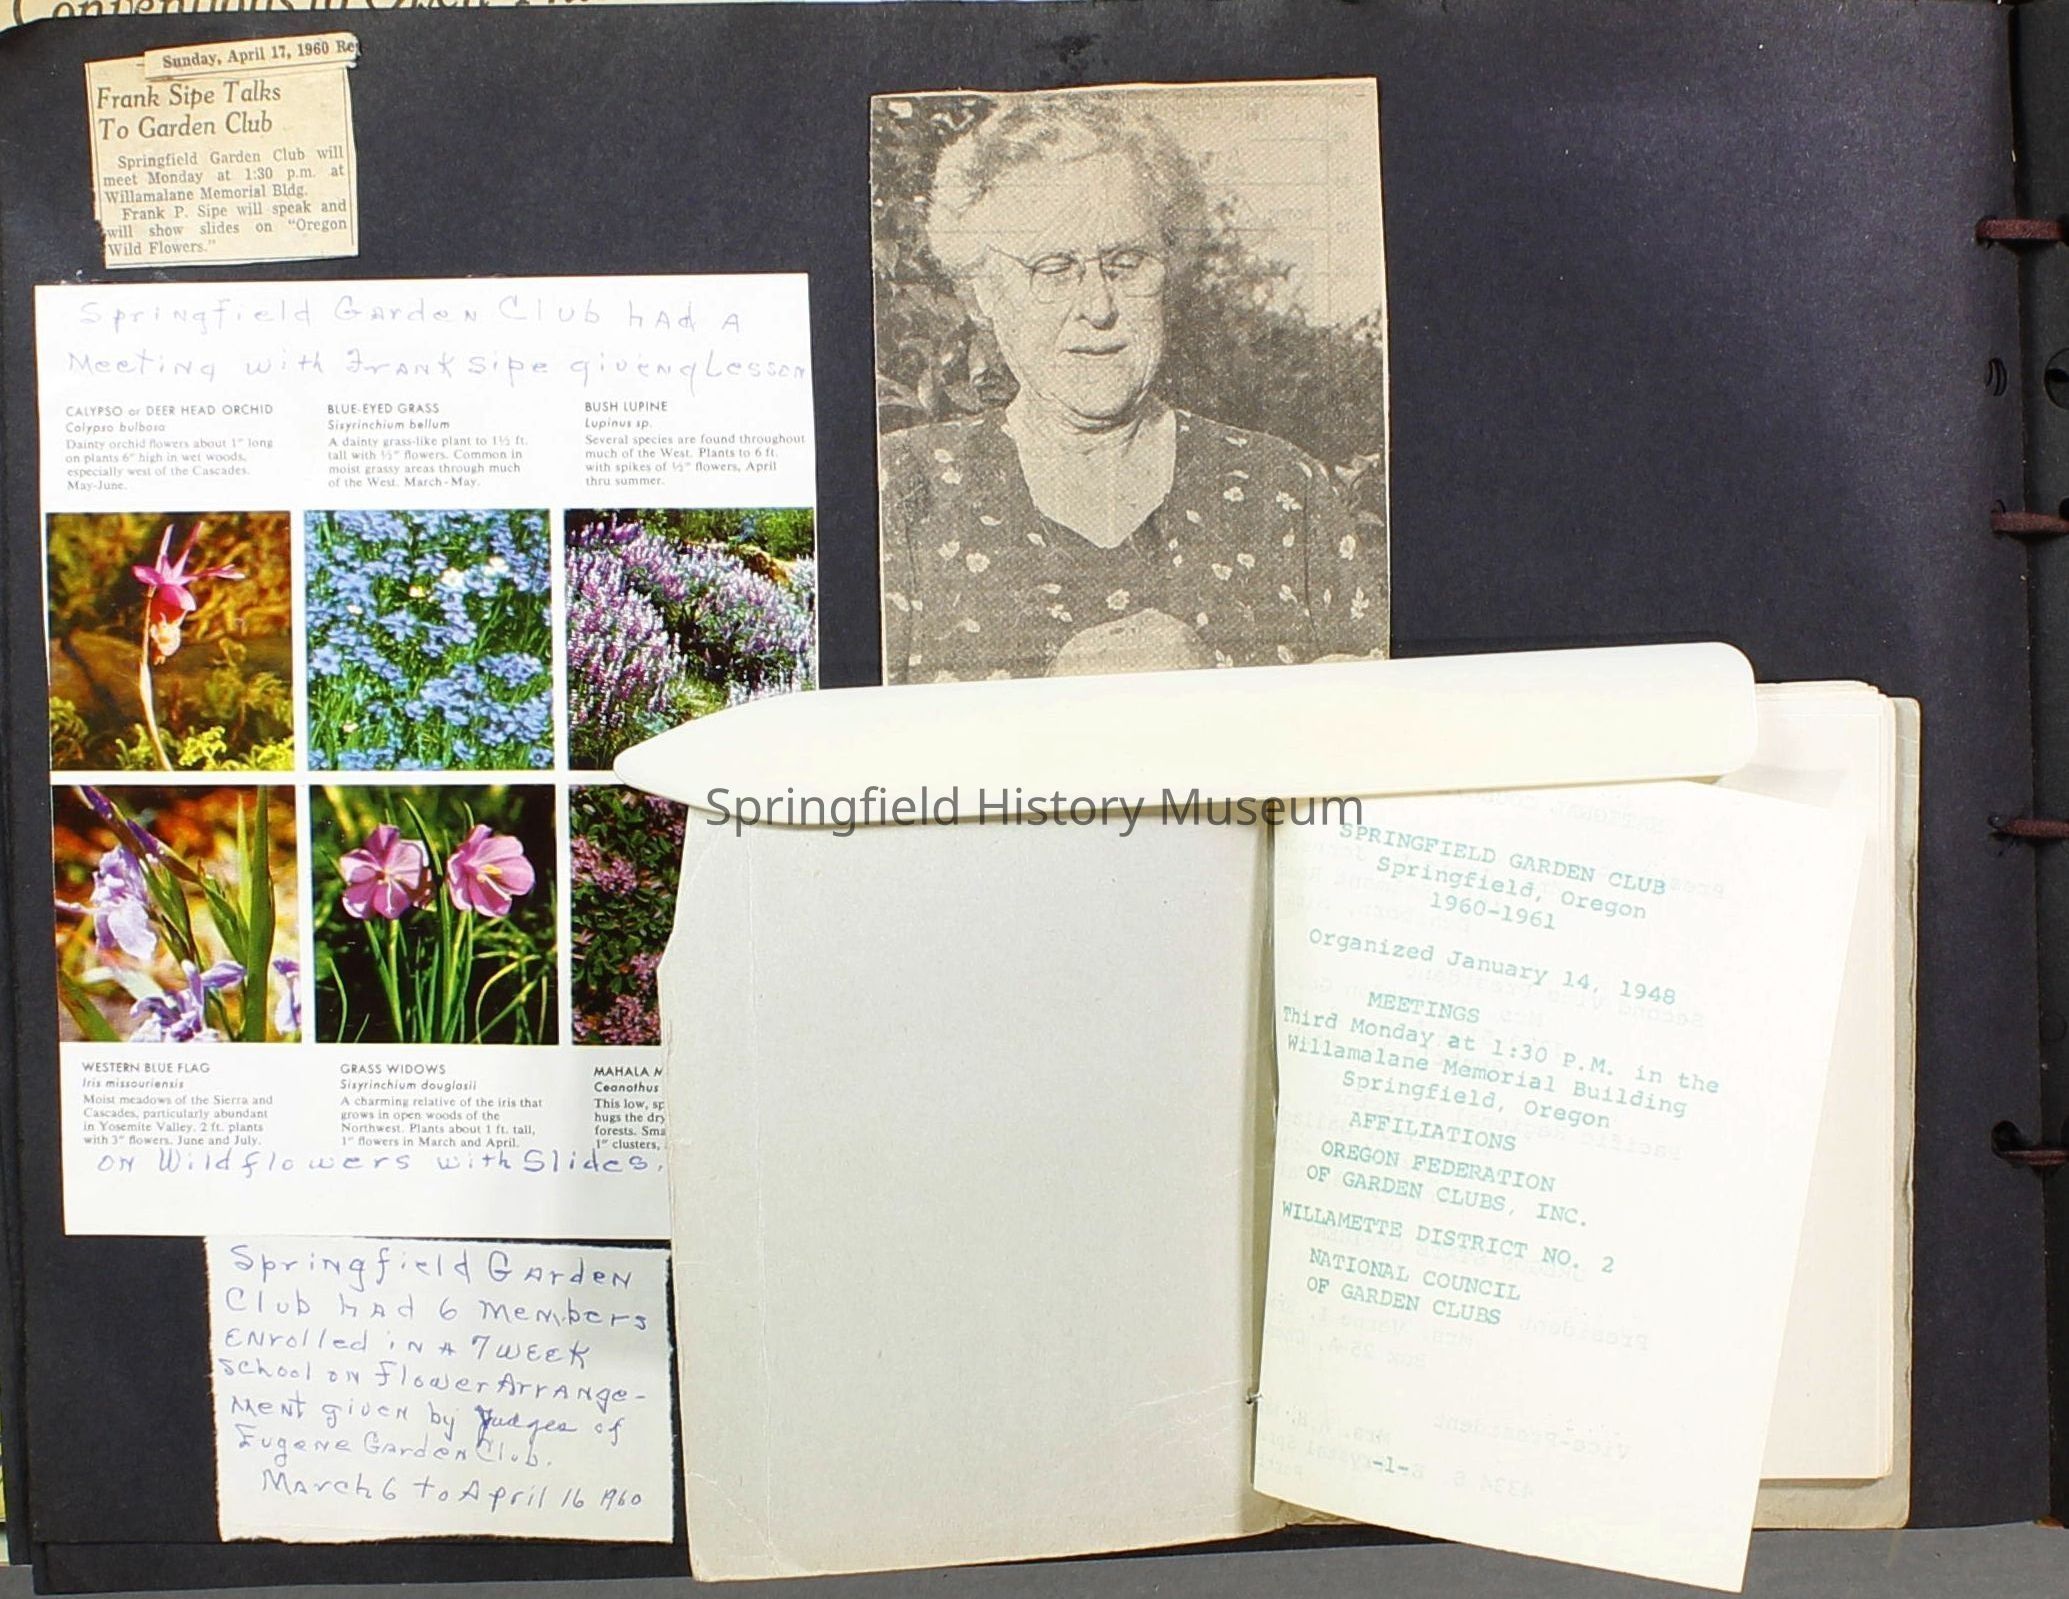 Sunday, April 17, 1960
Frank Sipe Talks
To Garden Club
Springfield Garden Club will
meet Monday at 1:30 p.m. at
Willamalane Memorial Bldg.
Frank P. Sipe will speak and
will show slides on "Oregon
Wild Flowers."
Springfield Garden Club had a
Meeting with Frank Sipe giveng Lesson
CALYPSO or DEER HEAD ORCHID
Calypso bulbosa
Dainty orchid flowers about 1" long
on plants 6" high in wet woods,
especially west of the Cascades.
May-June.
BLUE-EYED GRASS
Sisyrinchium bellum
A dainty grass-like plant to 1½ ft.
tall with ½" flowers. Common in
moist grassy areas through much
of the West. March-May.
BUSH LUPINE
Lupinus sp.
Several species are found throughout
much of the West. Plants to 6 ft.
with spikes of ½" flowers, April
thru summer.
WESTERN BLUE FLAG
Iris missouriensis
Moist meadows of the Sierra and
Cascades, particularly abundant
in Yosemite Valley. 2 ft. plants
with 3" flowers. June and July.
GRASS WIDOWS
Sisyrinchium douglasii
A charming relative of the iris that
grows in open woods of the
Northwest. Plants about 1 ft. tall,
1" flowers in March and April.
MAHALA M
Ceanothus
This low, sp
hugs the dry
forests. Sma
1" clusters,
on Wildflowers with Slides.
Springfield Garden
Club had 6 Members
Enrolled in a 7 week
School on Flower Arrange-
ment given by Judges of
Eugene Garden Club.
March 6 to April 16 1960
Springfield History Museum
SPRINGFIELD GARDEN CLUB
Springfield, Oregon
1960-1961
Organized January 14, 1948
MEETINGS
Third Monday at 1:30 P.M. in the
Willamalane Memorial Building
Springfield, Oregon
AFFILIATIONS
OREGON FEDERATION
OF GARDEN CLUBS, INC.
WILLAMETTE DISTRICT NO. 2
NATIONAL COUNCIL
OF GARDEN CLUBS
-1-